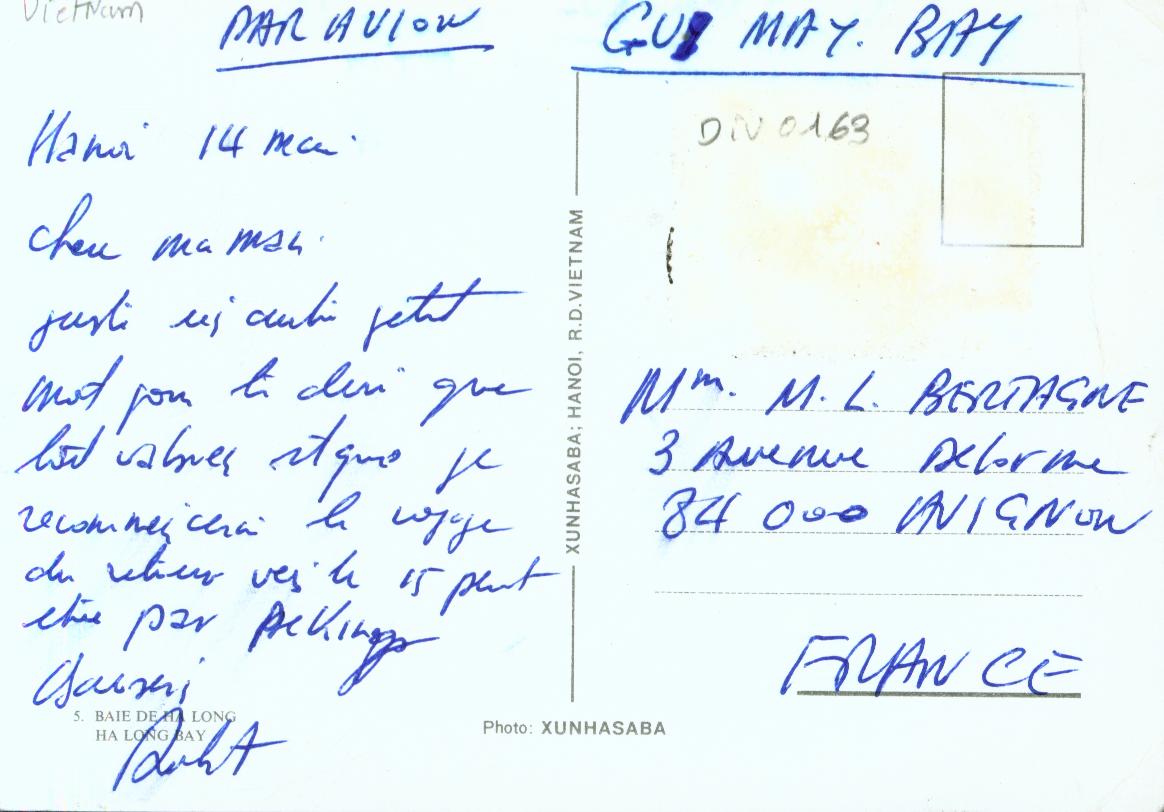 Vietnam
PAR AVION
GUI MAY. BAY
DIV 0163
Hanoi 14 mai
chere maman.
juste un autre petit
mot pour te dire que
tout va bien et que je
recommencerai le voyage
du retour vers le 15 peut
etre par PeKing
Baisers
Robert
5. BAIE DE HA LONG
HA LONG BAY
XUNHASABA; HANOI, R.D.VIETNAM
Photo: XUNHASABA
Mm. M. L. BERTAGNE
3 Avenue Delorme
84 000 AVIGNON
FRANCE